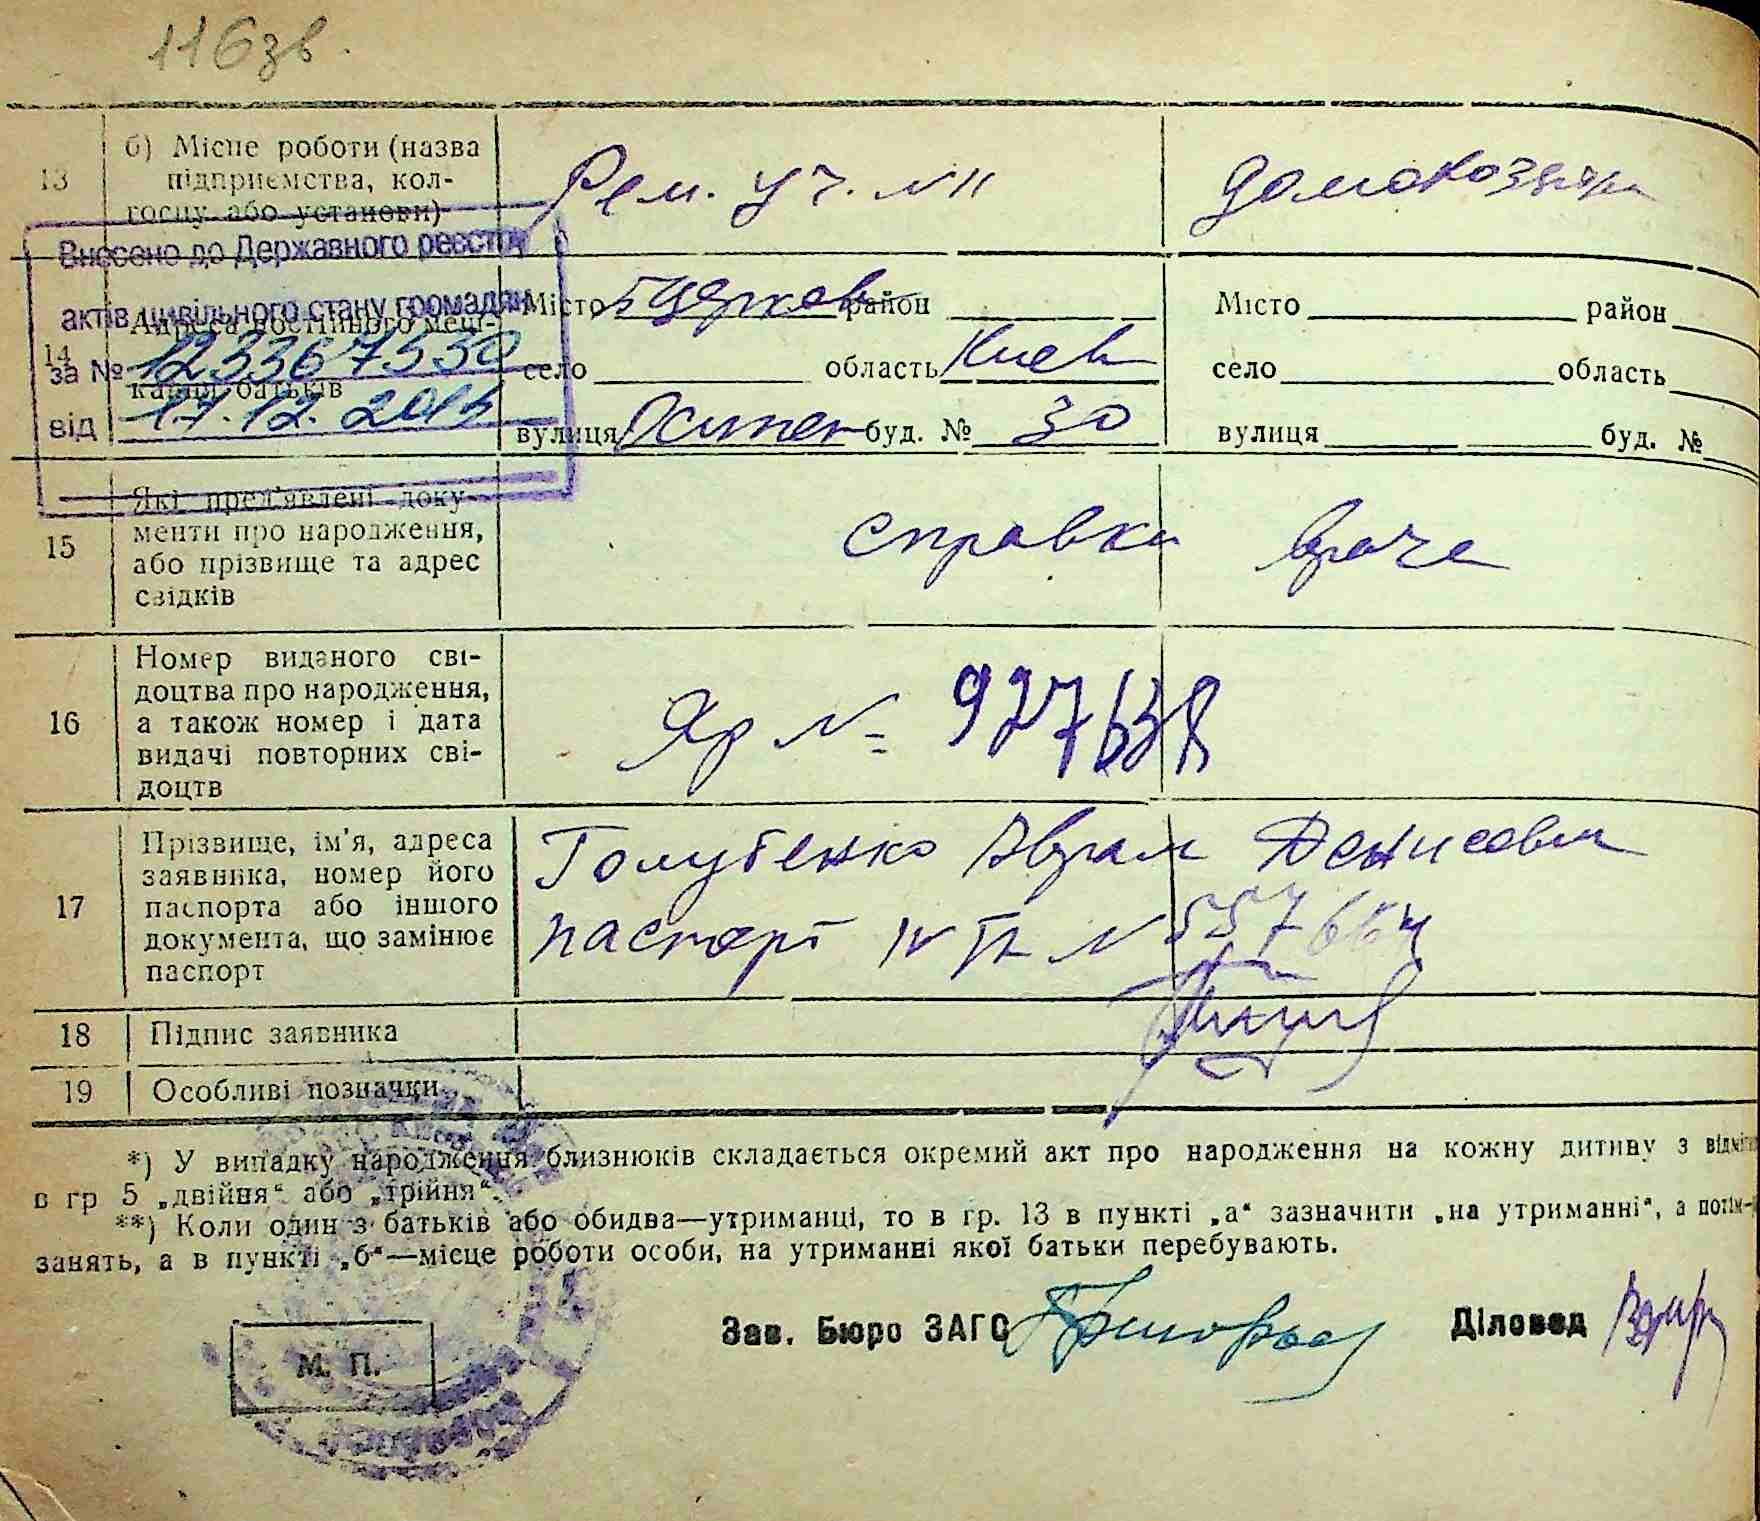 116 зв.
13
б) Місце роботи (назва
підприємства, кол-
госпу або установи)
Рем. уч. №11
домохозяйка
Внесено до Державного реєстру
актів цивільного стану громадян
за №
від
17.12.
14
Адреса постійного меш-
кання батьків
Місто Б Церковь район
село область Киев
вулиця буд. № 30
Місто район
село область
вулиця буд. №
15
Які пред'явлені доку-
менти про народження,
або прізвище та адрес
свідків
справка врача
16
Номер виданого сві-
доцтва про народження,
а також номер і дата
видачі повторних сві-
доцтв
№ 927638
17
Прізвище, ім'я, адреса
заявника, номер його
паспорта або іншого
документа, що замінює
паспорт
Голубенко Аврам Денисович
паспорт IV №
18
Підпис заявника
19
Особливі позначки
*) У випадку народження близнюків складається окремий акт про народження на кожну дитину з
в гр 5 „двійня“ або „трійня“.
**) Коли один з батьків або обидва—утриманці, то в гр. 13 в пункті „а“ зазначити „на утриманні“, а
занять, а в пункті „б“—місце роботи особи, на утриманні якої батьки перебувають.
Зав. Бюро ЗАГС
Діловод
М. П.